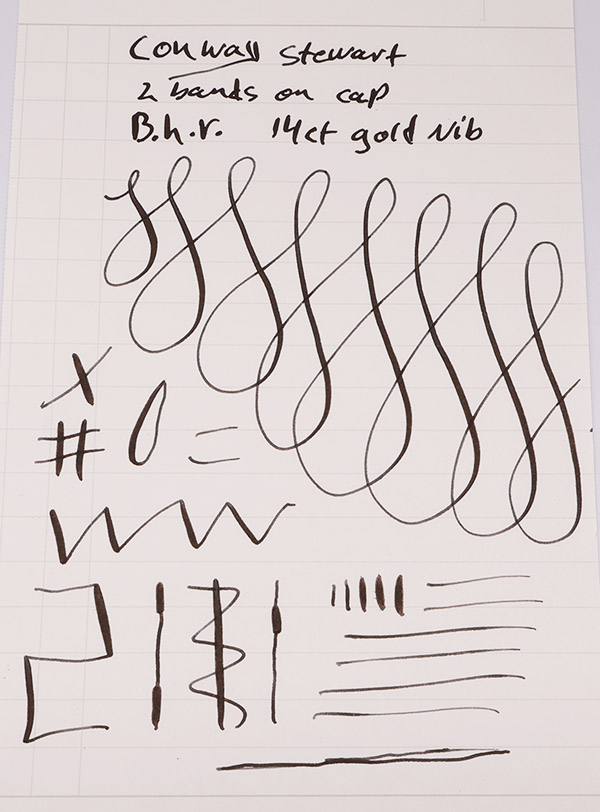 Conway Stewart
2 bands on cap
B.h.r. 14ct gold Nib